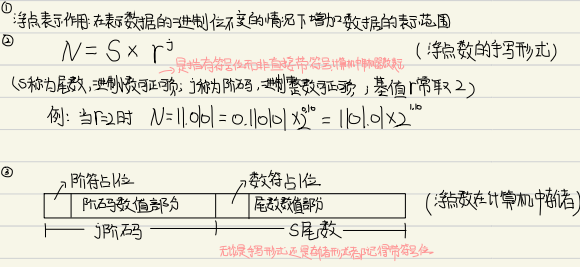 ① 浮点表示作用:在表示数据的二进制位不变的情况下增加数据的表示范围
② N = S × r^j (浮点数的手写形式)
→是指有符号位而非直接带符号,计算机中
(S称为尾数,二进制小数可正可负; j称为阶码,二进制整数可正可负; 基值r常取2)
例: 当r=2时 N=11.0101=0.110101×2^0,10=1101.01×2^1,10
③
阶符占1位 数符占1位
阶码数值部分 尾数数值部分 (浮点数在计算机中的存储)
j阶码 S尾数
无论是手写形式还是存储形式都记得带符号位